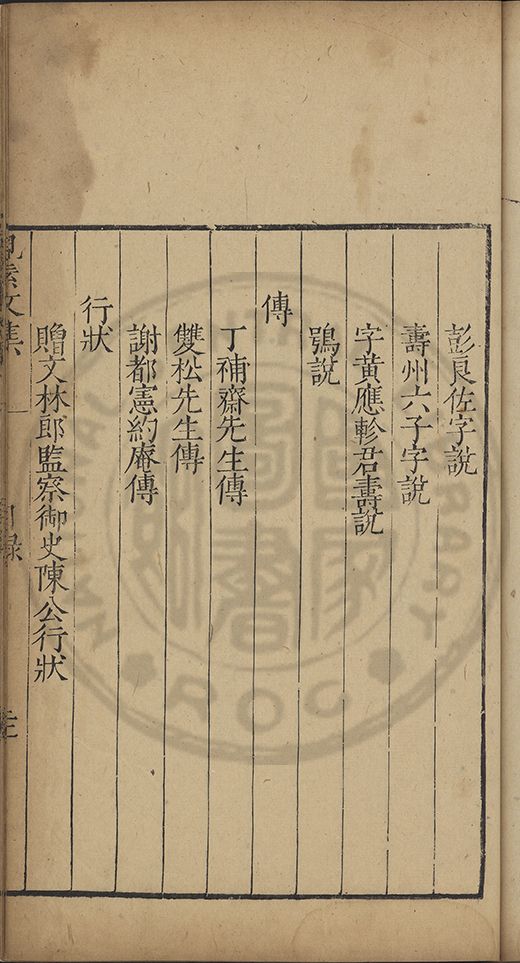 彭良佐字說
壽州六子字說
字黃應軫君壽說
鶚說
傳
丁補齋先生傳
雙松先生傳
謝都憲約庵傳
行狀
贈文林郎監察御史陳公行狀
文集
目錄